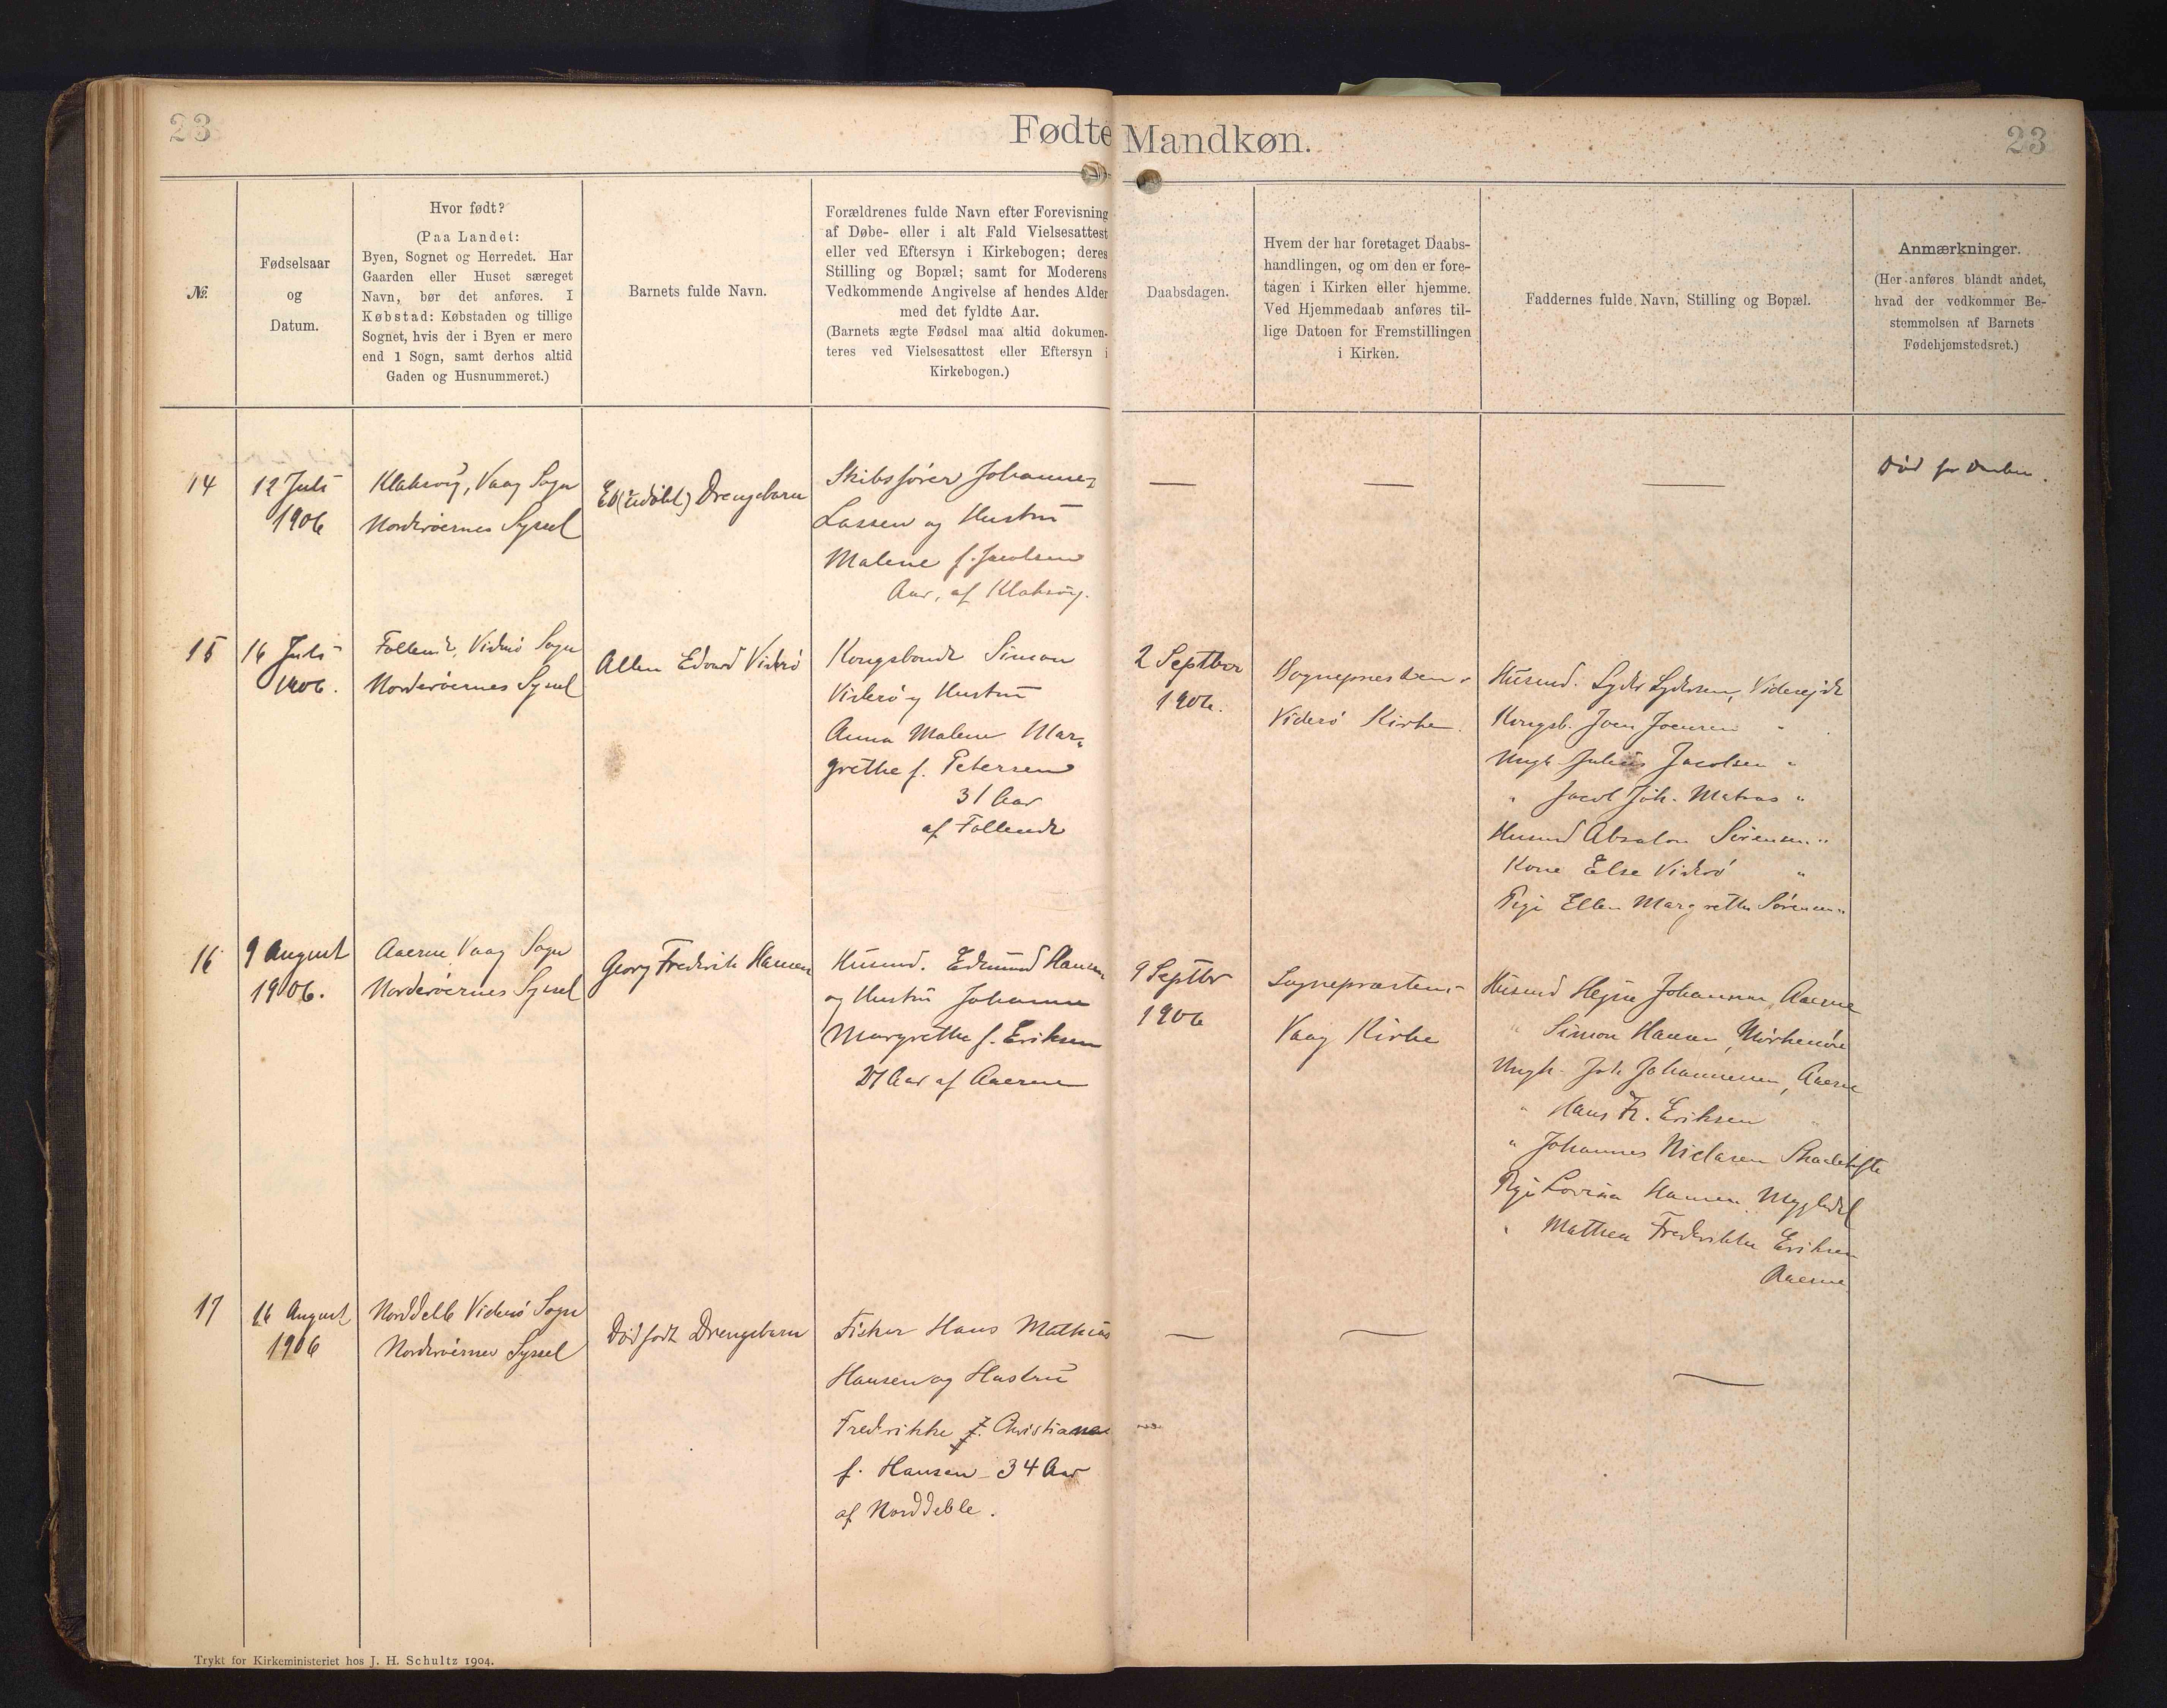 23
Fødte Mandkøn.
23
№
Fødselsaar
og
Datum.
Hvor født?
(Paa Landet:
Byen, Sognet og Herredet. Har
Gaarden eller Huset særeget
Navn, bør det anføres. I
Købstad: Købstaden og tillige
Sognet, hvis der i Byen er mere
end 1 Sogn, samt derhos altid
Gaden og Husnummeret.)
Barnets fulde Navn.
Forældrenes fulde Navn efter Forevisning
af Døbe- eller i alt Fald Vielsesattest
eller ved Eftersyn i Kirkebogen; deres
Stilling og Bopæl; samt for Moderens
Vedkommende Angivelse af hendes Alder
med det fyldte Aar.
(Barnets ægte Fødsel maa altid dokumen-
teres ved Vielsesattest eller Eftersyn i
Kirkebogen.)
Daabsdagen.
Hvem der har foretaget Daabs-
handlingen, og om den er fore-
tagen i Kirken eller hjemme.
Ved Hjemmedaab anføres til-
lige Datoen for Fremstillingen
i Kirken.
Faddernes fulde Navn, Stilling og Bopæl.
Anmærkninger.
(Her anføres blandt andet,
hvad der vedkommer Be-
stemmelsen af Barnets
Fødehjemstedsret.)
14
12 Juli
1906
Klaksvig, Vaag Sogn
Norderøernes Syssel
Et (udøbt) Drengebarn
Skibsfører Johannes
Lassen og Hustru
Malene f. Jacobsen
Aar, af Klaksvig.
—
—
—
Død før Daaben.
15
16 Juli
1906.
Viderø Sogn
Norderøernes Syssel
Allan Edvard Viderø
Kongsbonde Simon
Viderø og Hustru
Anna Malene Mar-
grethe f. Petersen
31 Aar
af
2 Septbr
1906.
Sognepræsten i
Viderø Kirke.
Husmd. Lyder Lydersen, Viderejde
Kongsb. Joen Joensen "
Ungk. Julius Jacobsen "
" Jacob Joh. Matras "
Husmd Absalon Sørensen "
Kone Else Viderø "
Pige Ellen Margrethe Sørensen "
16
9 August
1906.
Aaerne Vaag Sogn
Norderøernes Syssel
Georg Frederik Hansen
Husmd. Edmund Hansen
og Hustru Johanne
Margrethe f. Eriksen
27 Aar af Aaerne
9 Septbr
1906
Sognepræsten i
Vaag Kirke
Husmd Johannesen, Aaerne
" Simon Hansen, Mørkenøre
Ungk. Joh Johannesen, Aaerne
" Hans Fr. Eriksen "
" Johannes Niclasen
Pige Lovisa Hansen Mygledal
" Mathea Frederikke Eriksen
Aaerne
17
16 August
1906
Norddeble Viderø Sogn
Norderøernes Syssel
Dødfødt Drengebarn
Fisker Hans Mathias
Hansen og Hustru
Frederikke Christiane
f. Hansen 34 Aar
af Norddeble.
—
—
—
Trykt for Kirkeministeriet hos J. H. Schultz 1904.